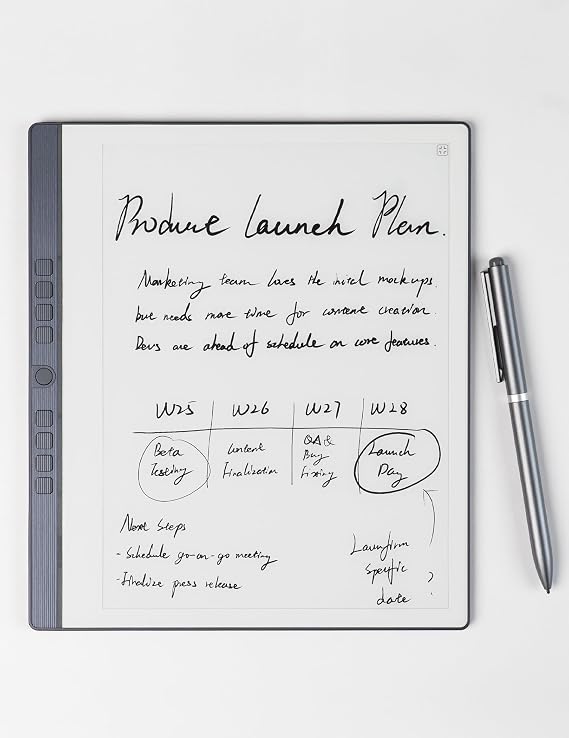 Produce Launch Plan.
Marketing team loves the initial mockups.
but needs more time for content creation.
Devs are ahead of schedule on core features.
W25 W26 W27 W28
Beta Content QA & Launch
Testing Finalization Bug Day
Fixing
Next Steps
- Schedule go-on-go meeting
- Finalize press release
specific ?
date